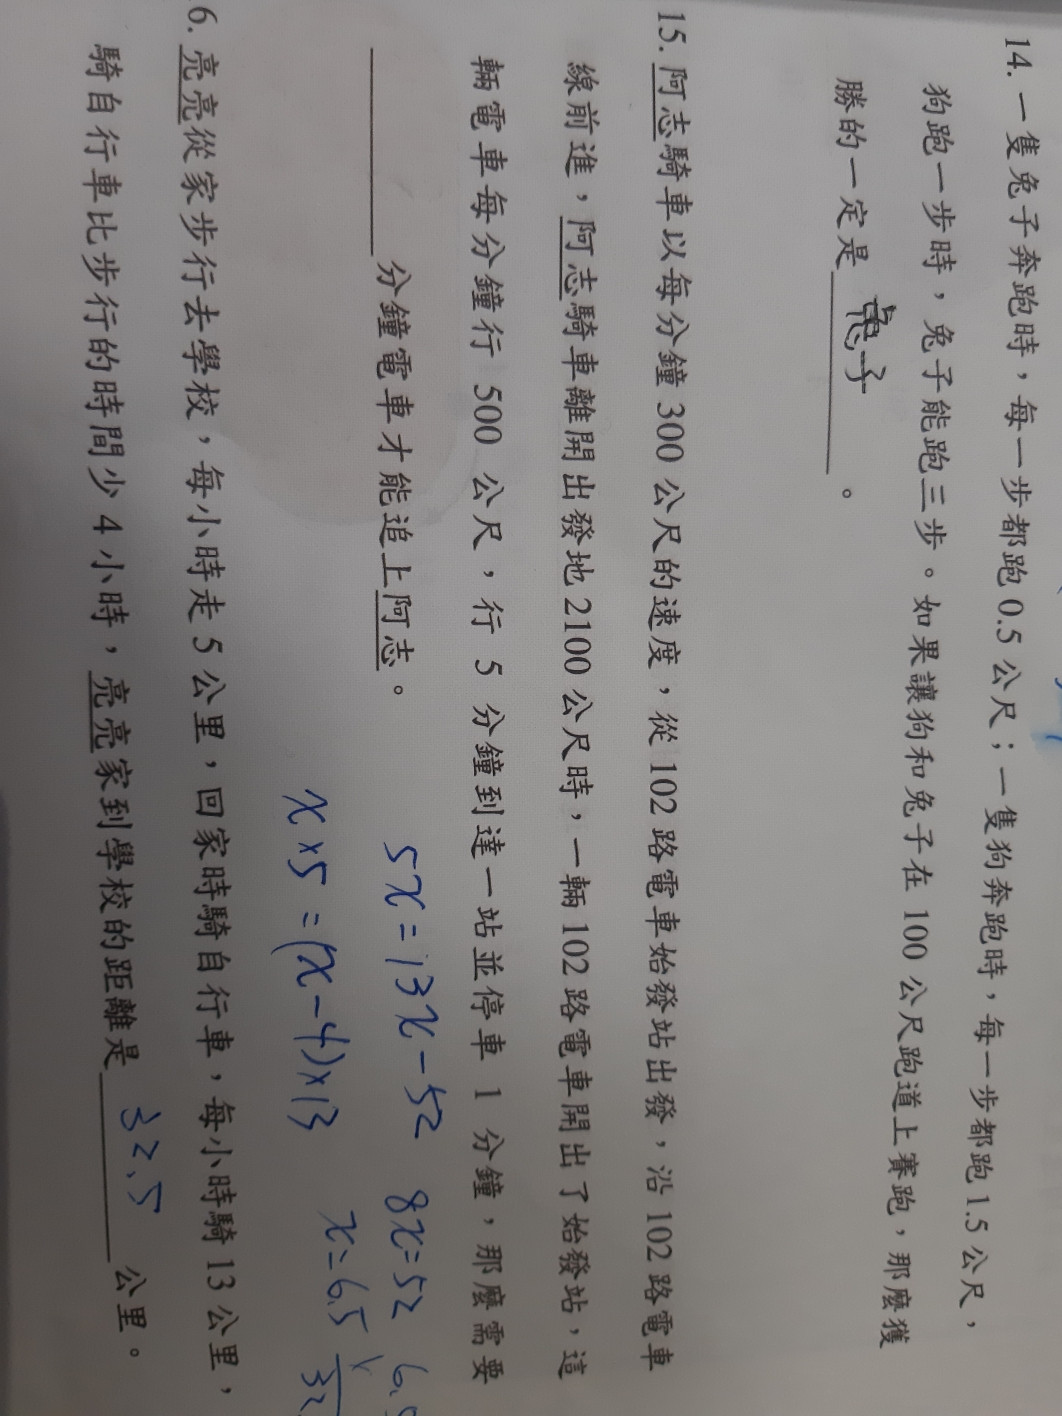 14. 一隻兔子奔跑時，每一步都跑 0.5 公尺；一隻狗奔跑時，每一步都跑 1.5 公尺，
狗跑一步時，兔子能跑三步。如果讓狗和兔子在 100 公尺跑道上賽跑，那麼獲
勝的一定是 兔子 。
15. 阿志騎車以每分鐘 300 公尺的速度，從 102 路電車始發站出發，沿 102 路電車
線前進，阿志騎車離開出發地 2100 公尺時，一輛 102 路電車開出了始發站，這
輛電車每分鐘行 500 公尺，行 5 分鐘到達一站並停車 1 分鐘，那麼需要
分鐘電車才能追上阿志。
5x=13x-52 8x=52
x×5=(x-4)×13 x=6.5
6. 亮亮從家步行去學校，每小時走 5 公里，回家時騎自行車，每小時騎 13 公里，
騎自行車比步行的時間少 4 小時，亮亮家到學校的距離是 32.5 公里。